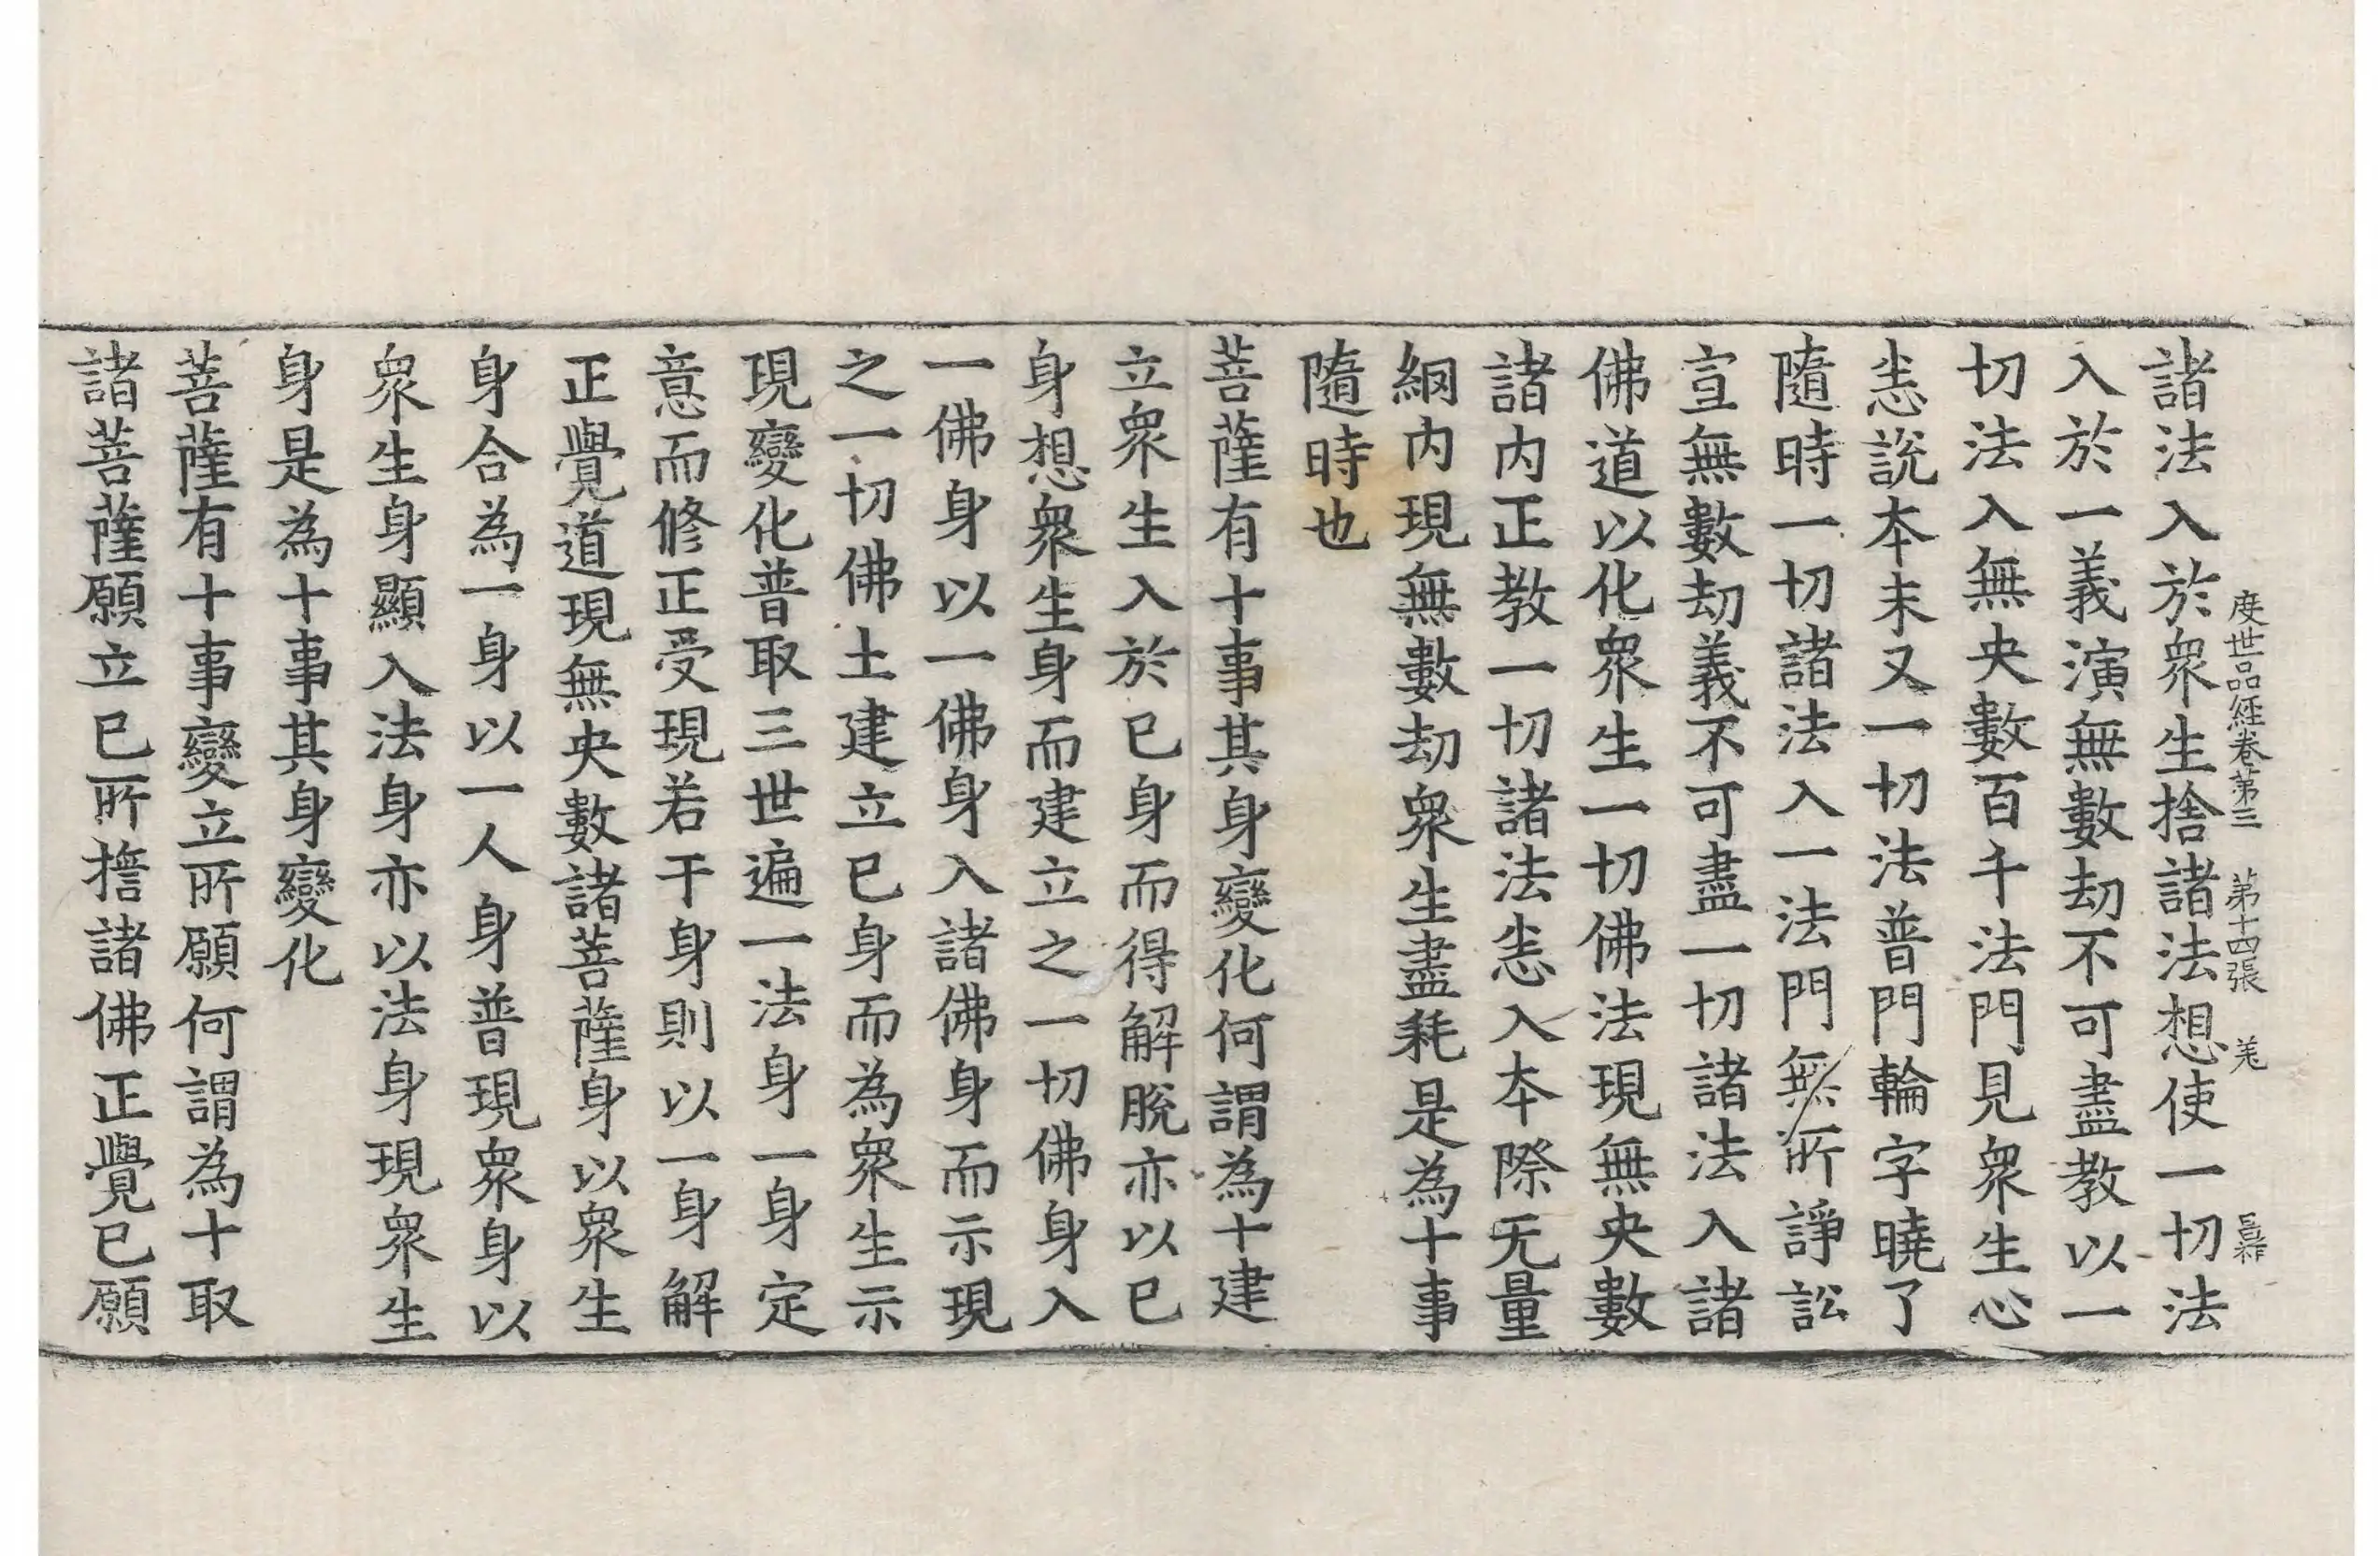 度世品経卷第三 第十四張 羌
諸法入於眾生捨諸法想使一切法
入於一義演無數劫不可盡教以一
切法入無央數百千法門見眾生心
恙說本末又一切法普門輪字曉了
隨時一切諸法入一法門無所諍訟
宣無數劫義不可盡一切諸法入諸
佛道以化眾生一切佛法現無央數
諸内正教一切諸法恙入本際无量
網内現無數劫眾生盡耗是為十事
隨時也
菩薩有十事其身變化何謂為十建
立眾生入於已身而得解脫亦以已
身想眾生身而建立之一切佛身入
一佛身以一佛身入諸佛身而示現
之一切佛土建立已身而為眾生示
現變化普取三世遍一法身一身定
意而修正受現若干身則以一身解
正覺道現無央數諸菩薩身以眾生
身合為一身以一人身普現眾身以
眾生身顯入法身亦以法身現眾生
身是為十事其身變化
菩薩有十事變立所願何謂為十取
諸菩薩願立已所擔諸佛正覺已願